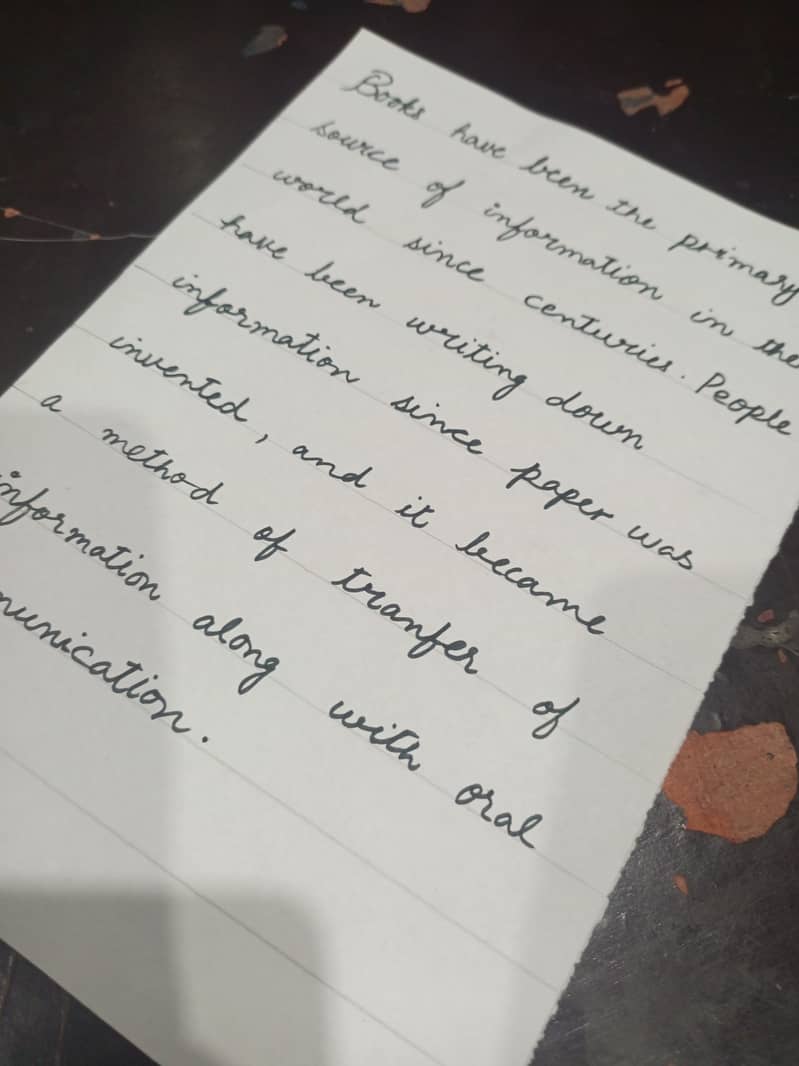 Books have been the primary
source of information in the
world since centuries. People
have been writing down
information since paper was
invented, and it became
a method of tranfer of
information along with oral
munication.